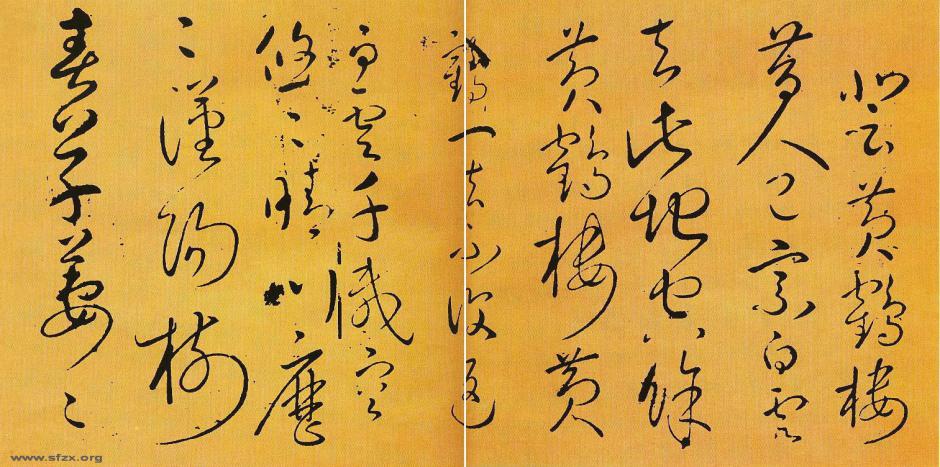 登黃鶴樓
昔人已乘白雲
去此地空餘
黃鶴樓黃
鶴一去不復返
白雲千載空
悠々晴川歷
々漢陽樹
春草萋々
www.sfzx.org